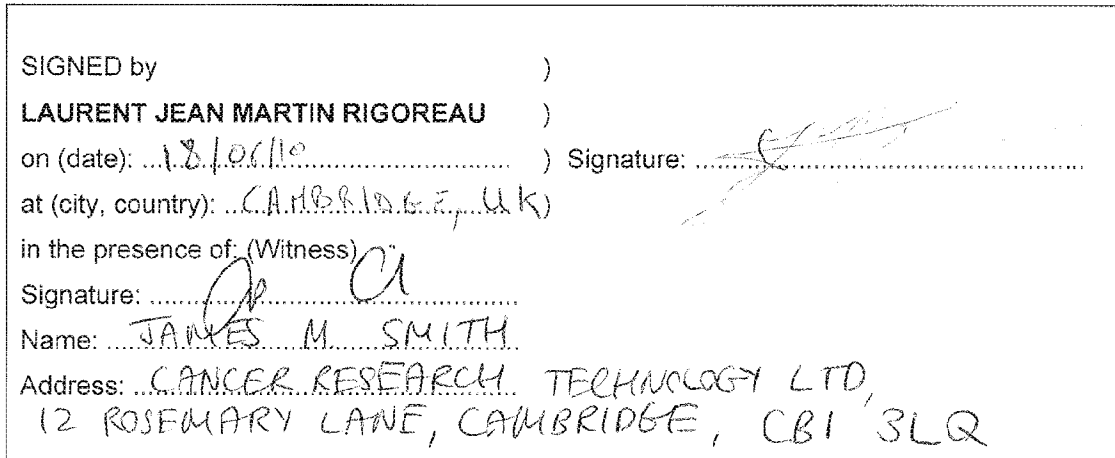 SIGNED by )
LAURENT JEAN MARTIN RIGOREAU )
on (date): 18/06/10 ) Signature:
at (city, country): CAMBRIDGE, UK )
in the presence of: (Witness)
Signature:
Name: JAMES M SMITH
Address: CANCER RESEARCH TECHNOLOGY LTD,
12 ROSEMARY LANE, CAMBRIDGE, CB1 3LQ